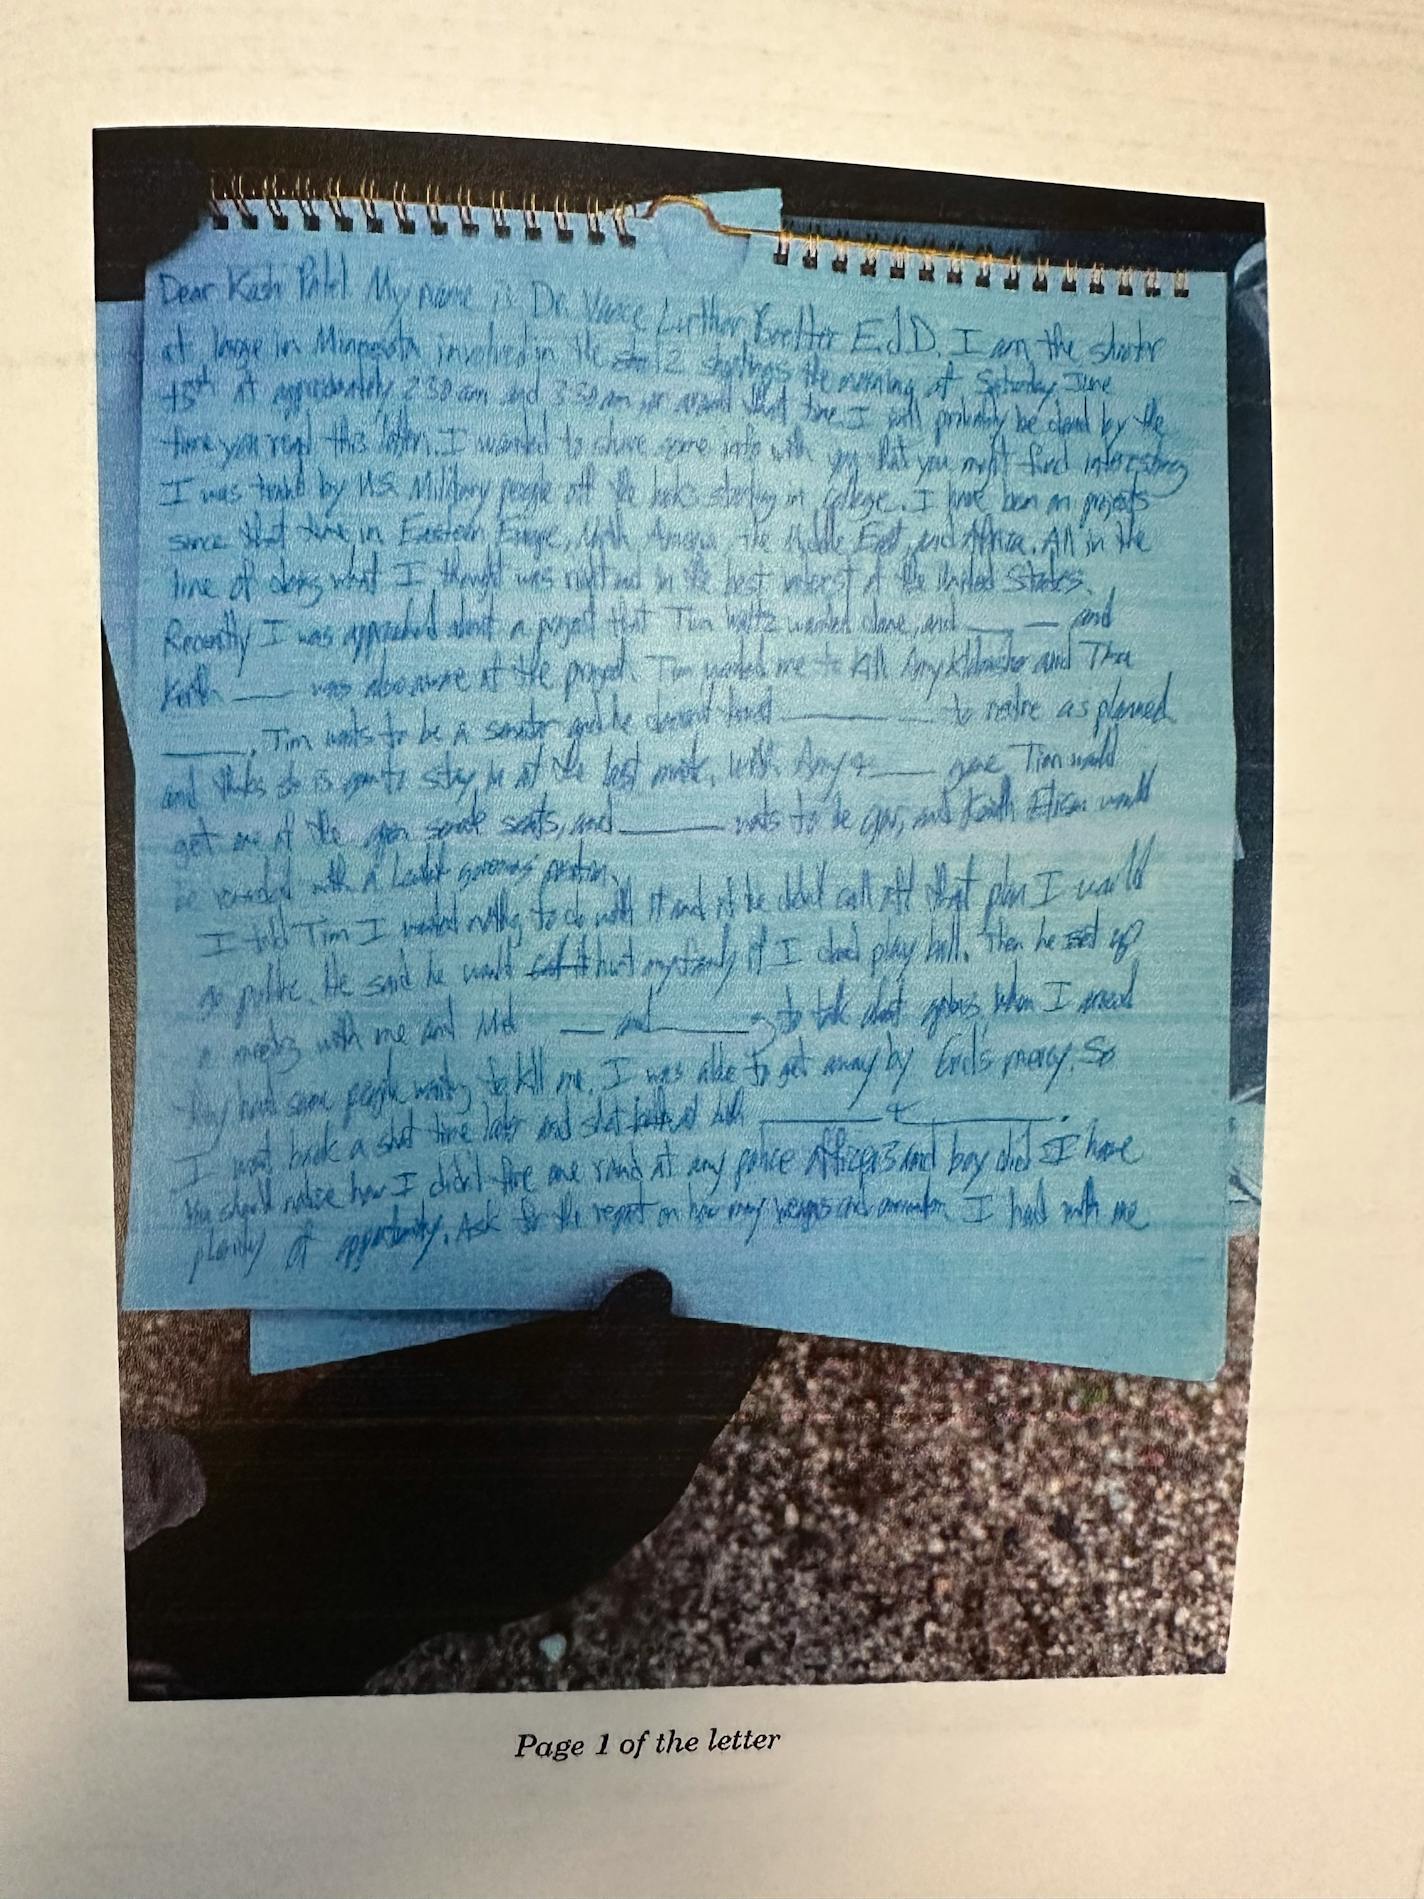 Dear Kash Patel. My name is Dr. Vance Luther Boelter Ed.D. I am the shooter
at large in Minnesota involved in the 2 shootings the morning of Saturday June
15th at approximately 2:30 am and 3:30 am or around that time. I will probably be dead by the
time you read this letter. I wanted to share some info with you that you might find interesting
I was by US Military people off the books starting in college. I have been on projects
since that time in Eastern Europe, North America, the Middle East, and Africa. All in the
line of doing what I thought was right and in the best interest of the United States.
Recently I was approached about a project that Tim wanted done, and ___ __ and
Keith ____ was also aware of the project. Tim wanted me to kill Amy and Tina
_____. Tim wants to be a senator and he doesn't trust _______ ___ to retire as planned
and thinks she is to stay in at the last minute. With Amy & ____ gone Tim would
get one of the open senate seats, and ______ wants to be gov, and Keith would
be rewarded with a governors position.
I told Tim I wanted nothing to do with it and if he didn't call off that plan I would
go public. He said he would hurt my family if I play ball. Then he set up
a meeting with me and __ and ______ to talk about when I arrived
They had some people waiting to kill me. I was able to get away by God's mercy. So
I went back a short time later and shot at both _______ & ________.
You should notice how I didn't fire one round at any police officers and boy did I have
plenty of opportunity. Ask for the report on how many weapons and I had with me
Page 1 of the letter